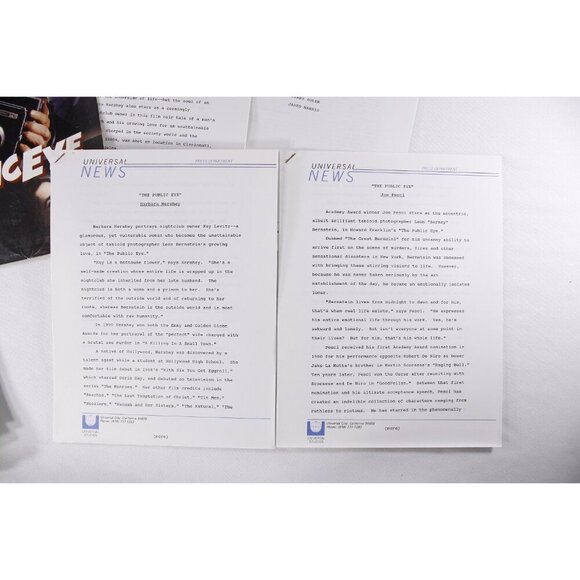 CEYE
the underside of life--but the soul of an
Hershey also stars as a seemingly
club owner in this film noir tale of a man's
and his growing love for an unattainable
steeped in the society world and the
was shot on location in Cincinnati,
JARED HARRIS
UNIVERSAL
NEWS
PRESS DEPARTMENT
"THE PUBLIC EYE"
Barbara Hershey
Barbara Hershey portrays nightclub owner Kay Levitz--a
glamorous, yet vulnerable woman who becomes the unattainable
object of tabloid photographer Leon Bernstein's growing
love, in "The Public Eye."
"Kay is a hothouse flower," says Hershey. "She's a
self-made creation whose entire life is wrapped up in the
nightclub she inherited from her late husband. The
nightclub is both a womb and a prison to her. She's
terrified of the outside world and of returning to her
roots, whereas Bernstein is the outside world and is most
comfortable with raw humanity."
In 1990 Hershey won both the Emmy and Golden Globe
Awards for her portrayal of the "perfect" wife charged with
a brutal axe murder in "A Killing In A Small Town."
A native of Hollywood, Hershey was discovered by a
talent agent while a student at Hollywood High School. She
made her film debut in 1968's "With Six You Get Eggroll,"
which starred Doris Day, and debuted on television in the
series "The Monroes." Her other film credits include
"Beaches," "The Last Temptation of Christ," "Tin Men,"
"Hoosiers," "Hannah and Her Sisters," "The Natural," "The
Universal City, California 91608
Phone: (818) 777-1293
UNIVERSAL
STUDIOS
(more)
UNIVERSAL
NEWS
PRESS DEPARTMENT
"THE PUBLIC EYE"
Joe Pesci
Academy Award winner Joe Pesci stars as the eccentric,
albeit brilliant tabloid photographer Leon "Bernzy"
Bernstein, in Howard Franklin's "The Public Eye."
Dubbed "The Great Bernzini" for his uncanny ability to
arrive first on the scene of murders, fires and other
sensational disasters in New York, Bernstein was obsessed
with bringing these stirring visions to life. However,
because he was never taken seriously by the art
establishment of the day, he became an emotionally isolated
loner.
"Bernstein lives from midnight to dawn and for him,
that's when real life exists," says Pesci. "He expresses
his entire emotional life through his work. Yes, he's
awkward and lonely. But isn't everyone at some point in
their lives? But for him, that's his whole life."
Pesci received his first Academy Award nomination in
1980 for his performance opposite Robert De Niro as boxer
Jake La Motta's brother in Martin Scorsese's "Raging Bull."
Ten years later, Pesci won the Oscar after reuniting with
Scorsese and De Niro in "GoodFellas." Between that first
nomination and his ultimate acceptance speech, Pesci has
created an indelible collection of characters ranging from
ruthless to riotous. He has starred in the phenomenally
Universal City, California 91608
Phone: (818) 777-1293
UNIVERSAL
STUDIOS
(more)